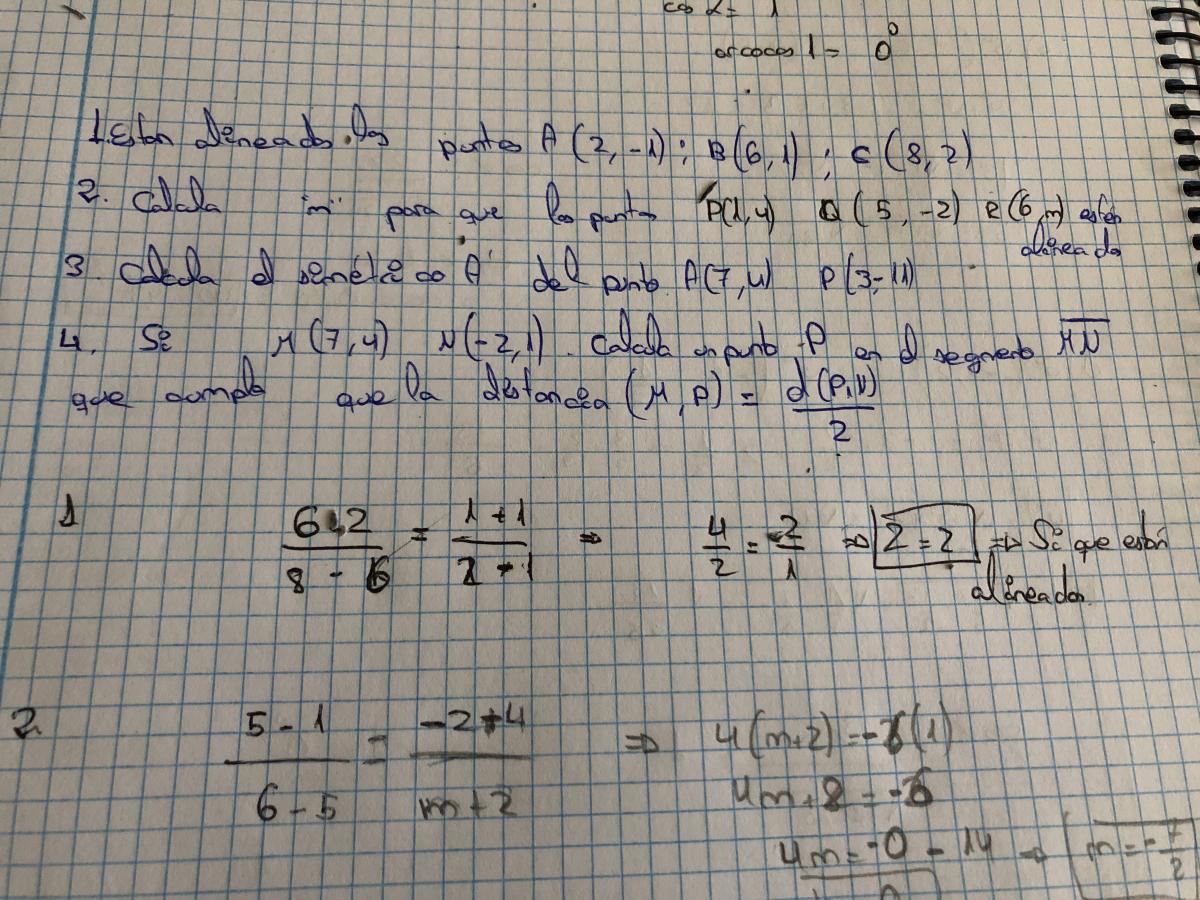 cos α = 1
arccos 1 = 0°
1. Estan alineados los puntos A (2, -1) ; B (6, 1) ; C (8, 2)
2. Calcula "m" para que los puntos P(1,4) Q (5, -2) R (6, m) estén
alineados
3. Calcula el simétrico A' del punto A(7,4) P(3,-11)
4. Si M (7,4) N(-2,1). Calcula un punto P en el segmento MN
que cumpla que la distancia (M, P) = d(P,N)/2
1 6-2/8-6 = 1+1/2-1 ⇒ 4/2 = 2/1 ⇒ 2 = 2 ⇒ Si que están
alineados
2. 5-1/6-5 = -2-4/m+2 ⇒ 4(m+2) = -6(1)
4m+8 = -6
4m = - 14 ⇒ m = -7/2